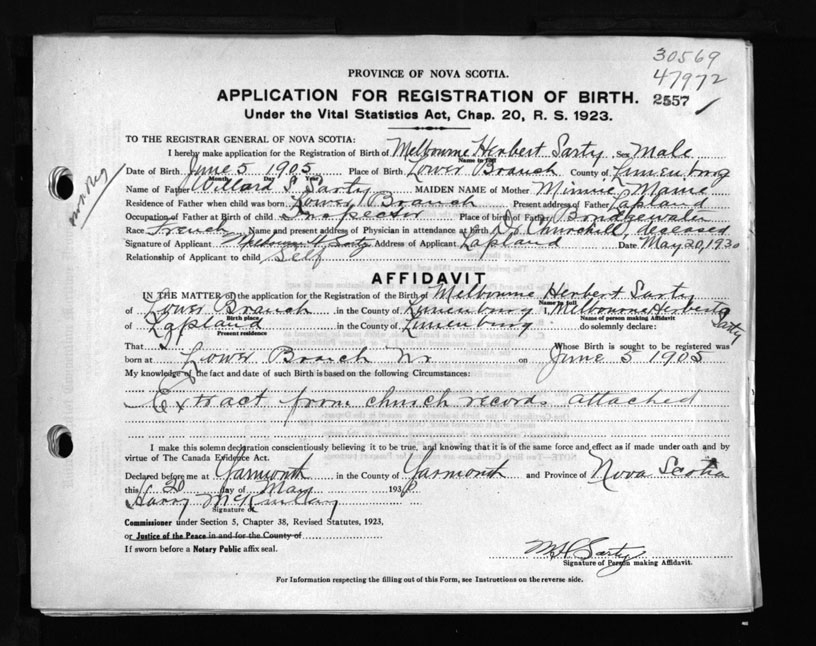 30569
47972
2557
PROVINCE OF NOVA SCOTIA.
APPLICATION FOR REGISTRATION OF BIRTH.
Under the Vital Statistics Act, Chap. 20, R. S. 1923.
TO THE REGISTRAR GENERAL OF NOVA SCOTIA:
I hereby make application for the Registration of Birth of Melbourne Herbert Sarty Sex Male
Name in full
Date of Birth June 5 1905 Place of Birth Lower Branch County of Lunenburg
Month Day Year
Name of Father Willard S. Sarty MAIDEN NAME of Mother Minnie Mame
Residence of Father when child was born Lower Branch Present address of Father Lapland
Occupation of Father at Birth of child Inspector Place of birth of Father Bridgewater
Race French Name and present address of Physician in attendance at birth Dr Churchill, deceased
Signature of Applicant Melbourne H. Sarty Address of Applicant Lapland Date May 20, 1930
Relationship of Applicant to child Self
AFFIDAVIT
IN THE MATTER of the application for the Registration of the Birth of Melbourne Herbert Sarty
Name in full
of Lower Branch in the County of Lunenburg I, Melbourne Herbert Sarty
Birth place Name of person making Affidavit
of Lapland in the County of Lunenburg do solemnly declare:
Present residence
That I Whose Birth is sought to be registered was
born at Lower Branch on June 5 1905
My knowledge of the fact and date of such Birth is based on the following Circumstances:
Extract from church records attached
I make this solemn declaration conscientiously believing it to be true, and knowing that it is of the same force and effect as if made under oath and by
virtue of The Canada Evidence Act.
Declared before me at Yarmouth in the County of Yarmouth and Province of Nova Scotia
this 20 day of May 1930
Harry McKinley
Signature of
Commissioner under Section 5, Chapter 38, Revised Statutes, 1923,
or Justice of the Peace in and for the County of
If sworn before a Notary Public affix seal.
M H Sarty
Signature of Person making Affidavit.
For Information respecting the filling out of this Form, see Instructions on the reverse side.